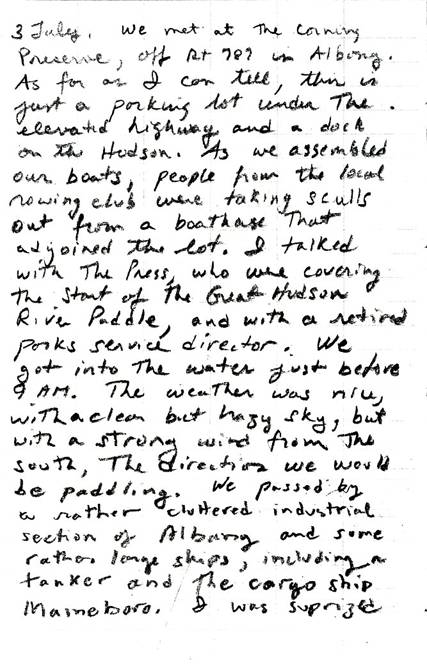 3 July. We met at The Corning
Preserve, off Rt 787 in Albany.
As for as I can tell, this is
just a parking lot under The
elevated highway and a dock
on the Hudson. As we assembled
our boats, people from the local
rowing club were taking sculls
out from a boathouse That
adjoined the lot. I talked
with The Press, who were covering
the start of The Great Hudson
River Paddle, and with a retired
parks service director. We
got into The water just before
9 AM. The weather was nice,
with a clear but hazy sky, but
with a strong wind from The
south, The direction we would
be paddling. We passed by
a rather cluttered industrial
section of Albany and some
rather large ships, including a
tanker and The cargo ship
Maineboro. I was suprized